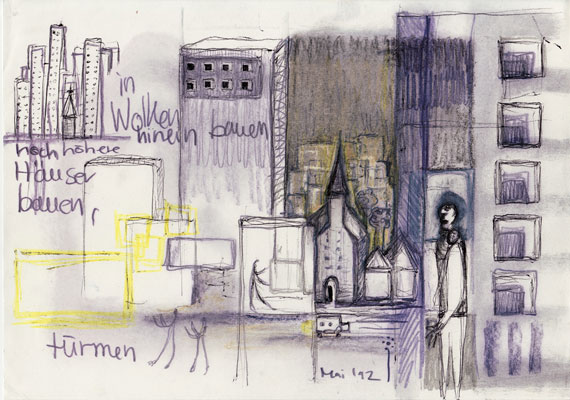 in
Wolken
hinein bauen
noch höhere
Häuser
bauen,
türmen
Mai '92